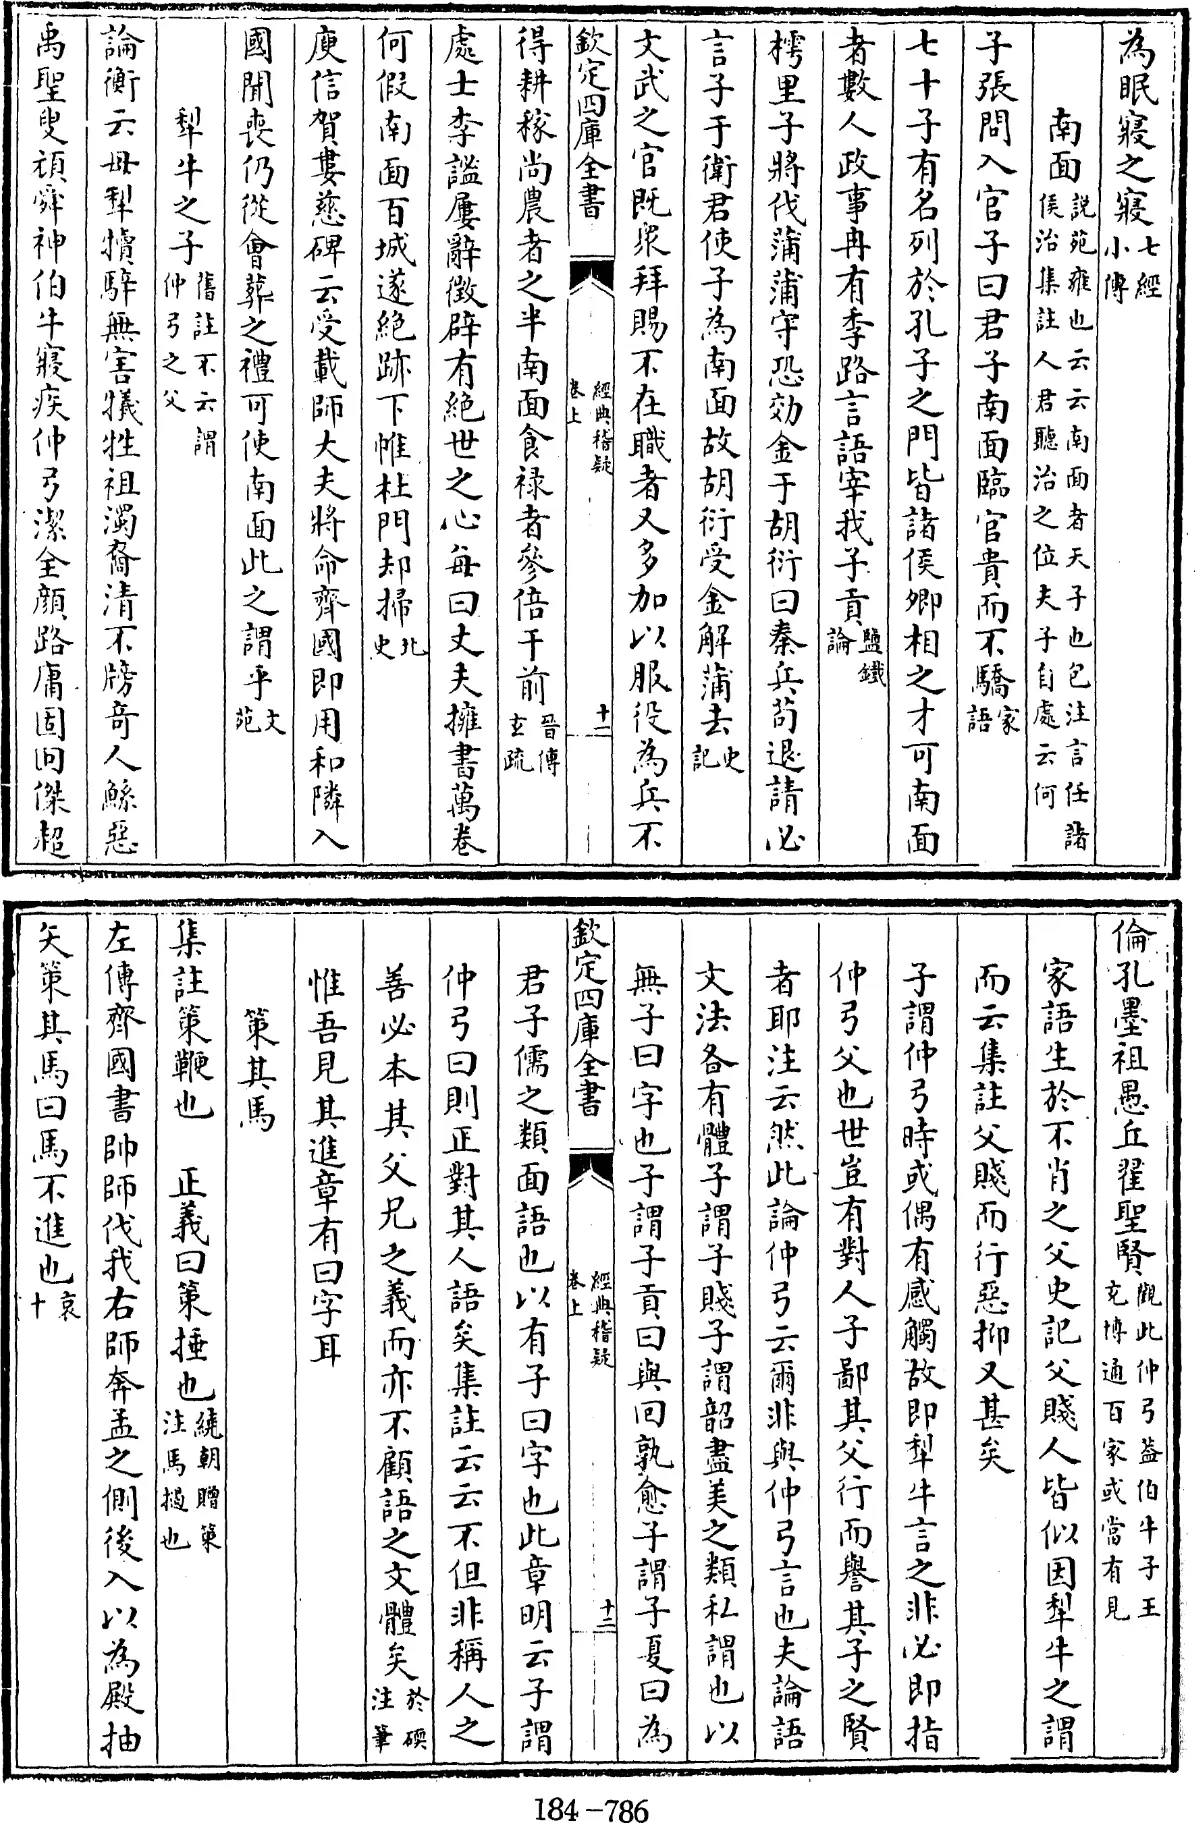 為眠寢之寢七經小傳
南面說苑雍也云云南面者天子也包注言任諸侯治集註人君聽治之位夫子自處云何
子張問入官子曰君子南面臨官貴而不驕家語
七十子有名列於孔子之門皆諸侯卿相之才可南面
者數人政事冉有季路言語宰我子貢鹽鐵論
樗里子將伐蒲蒲守恐効金于胡衍曰秦兵苟退請必
言子于衛君使子為南面故胡衍受金解蒲去史記
文武之官既衆拜賜不在職者又多加以服役為兵不
欽定四庫全書 經典稽疑卷上 十一
得耕稼尚農者之半南面食祿者參倍于前晉傅玄疏
處士李謐屢辭徵辟有絕世之心每曰丈夫擁書萬卷
何假南面百城遂絕跡下帷杜門却掃北史
庾信賀婁慈碑云受載師大夫將命齊國即用和隣入
國聞喪仍從會葬之禮可使南面此之謂乎文苑
犁牛之子舊註不云謂仲弓之父
論衡云母犁犢騂無害犧牲祖濁裔清不牓奇人鯀惡
禹聖叟頑舜神伯牛寢疾仲弓潔全顏路庸固回傑超
倫孔墨祖愚丘翟聖賢觀此仲弓葢伯牛子王充博通百家或當有見
家語生於不肖之父史記父賤人皆似因犁牛之謂
而云集註父賤而行惡抑又甚矣
子謂仲弓時或偶有感觸故即犁牛言之非必即指
仲弓父也世豈有對人子鄙其父行而譽其子之賢
者耶注云然此論仲弓云爾非與仲弓言也夫論語
文法各有體子謂子賤子謂韶盡美之類私謂也以
無子曰字也子謂子貢曰與回孰愈子謂子夏曰為
欽定四庫全書 經典稽疑卷上 十二
君子儒之類面語也以有子曰字也此章明云子謂
仲弓曰則正對其人語矣集註云云不但非稱人之
善必本其父兄之義而亦不顧語之文體矣於磢注筆
惟吾見其進章有曰字耳
策其馬
集註策鞭也 正義曰策捶也繞朝贈策注馬撾也
左傳齊國書帥師伐我右師奔孟之側後入以為殿抽
矢策其馬曰馬不進也哀十
184-786